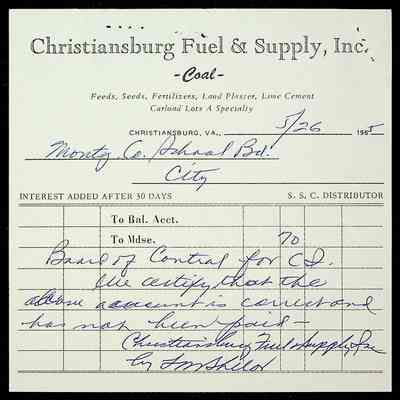 Christiansburg Fuel & Supply, Inc.
-Coal-
Feeds, Seeds, Fertilizers, Land Plaster, Lime Cement
Carload Lots A Specialty
CHRISTIANSBURG, VA., 5/26 1955
Montg. Co. School Bd.
City
INTEREST ADDED AFTER 30 DAYS S. S. C. DISTRIBUTOR
To Bal. Acct.
To Mdse. 70
Board of Control for C.I.
We certify that the
above account is correct and
has not been paid -
Christiansburg Fuel & Supply, Inc
by